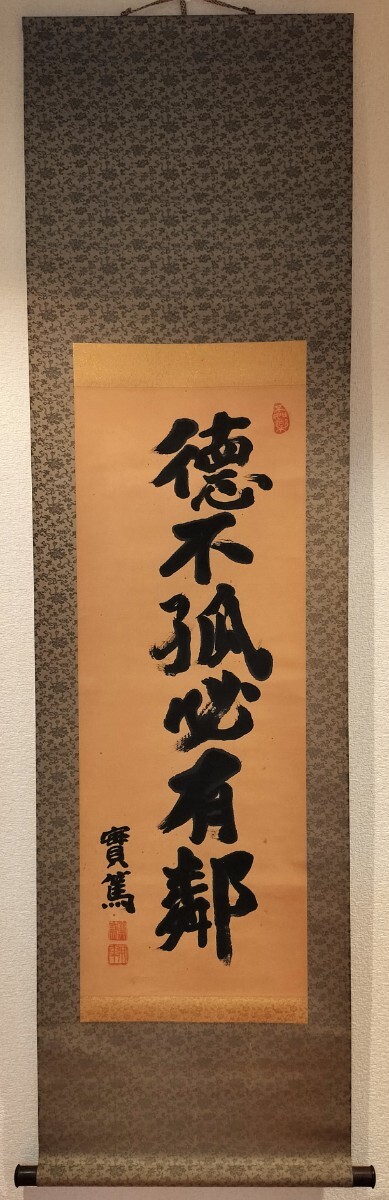 德不孤必有鄰
實篤